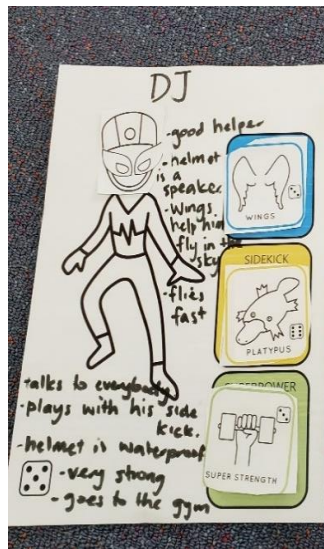 DJ
-good helper
-helmet
is a
speaker
-wings
help him
fly in the
sky
-flies
fast
WINGS
SIDEKICK
PLATYPUS
SUPERPOWER
SUPER STRENGTH
-talks to everybody
-plays with his side
kick.
-helmet is waterproof
-very strong
-goes to the gym